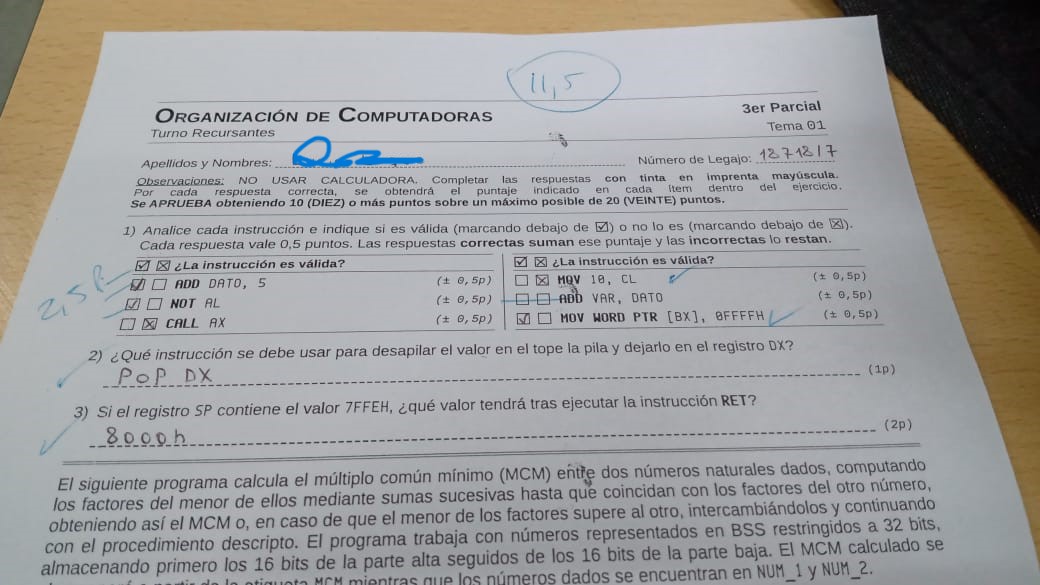 11,5
ORGANIZACIÓN DE COMPUTADORAS
3er Parcial
Turno Recursantes
Tema 01
Apellidos y Nombres:
Número de Legajo: 18718/7
Observaciones: NO USAR CALCULADORA. Completar las respuestas con tinta en imprenta mayúscula.
Por cada respuesta correcta, se obtendrá el puntaje indicado en cada ítem dentro del ejercicio.
Se APRUEBA obteniendo 10 (DIEZ) o más puntos sobre un máximo posible de 20 (VEINTE) puntos.
1) Analice cada instrucción e indique si es válida (marcando debajo de ☑) o no lo es (marcando debajo de ☒).
Cada respuesta vale 0,5 puntos. Las respuestas correctas suman ese puntaje y las incorrectas lo restan.
☑ ☒ ¿La instrucción es válida?
☑ ☐ ADD DATO, 5 (± 0,5p)
☑ ☐ NOT AL (± 0,5p)
☐ ☒ CALL AX (± 0,5p)
2,5 P.
☑ ☒ ¿La instrucción es válida?
☐ ☒ MOV 10, CL (± 0,5p)
☐ ☐ ADD VAR, DATO (± 0,5p)
☑ ☐ MOV WORD PTR [BX], 0FFFFH (± 0,5p)
2) ¿Qué instrucción se debe usar para desapilar el valor en el tope la pila y dejarlo en el registro DX?
POP DX (1p)
3) Si el registro SP contiene el valor 7FFEH, ¿qué valor tendrá tras ejecutar la instrucción RET?
8000h (2p)
El siguiente programa calcula el múltiplo común mínimo (MCM) entre dos números naturales dados, computando
los factores del menor de ellos mediante sumas sucesivas hasta que coincidan con los factores del otro número,
obteniendo así el MCM o, en caso de que el menor de los factores supere al otro, intercambiándolos y continuando
con el procedimiento descripto. El programa trabaja con números representados en BSS restringidos a 32 bits,
almacenando primero los 16 bits de la parte alta seguidos de los 16 bits de la parte baja. El MCM calculado se
a partir de la etiqueta MCM mientras que los números dados se encuentran en NUM_1 y NUM_2.